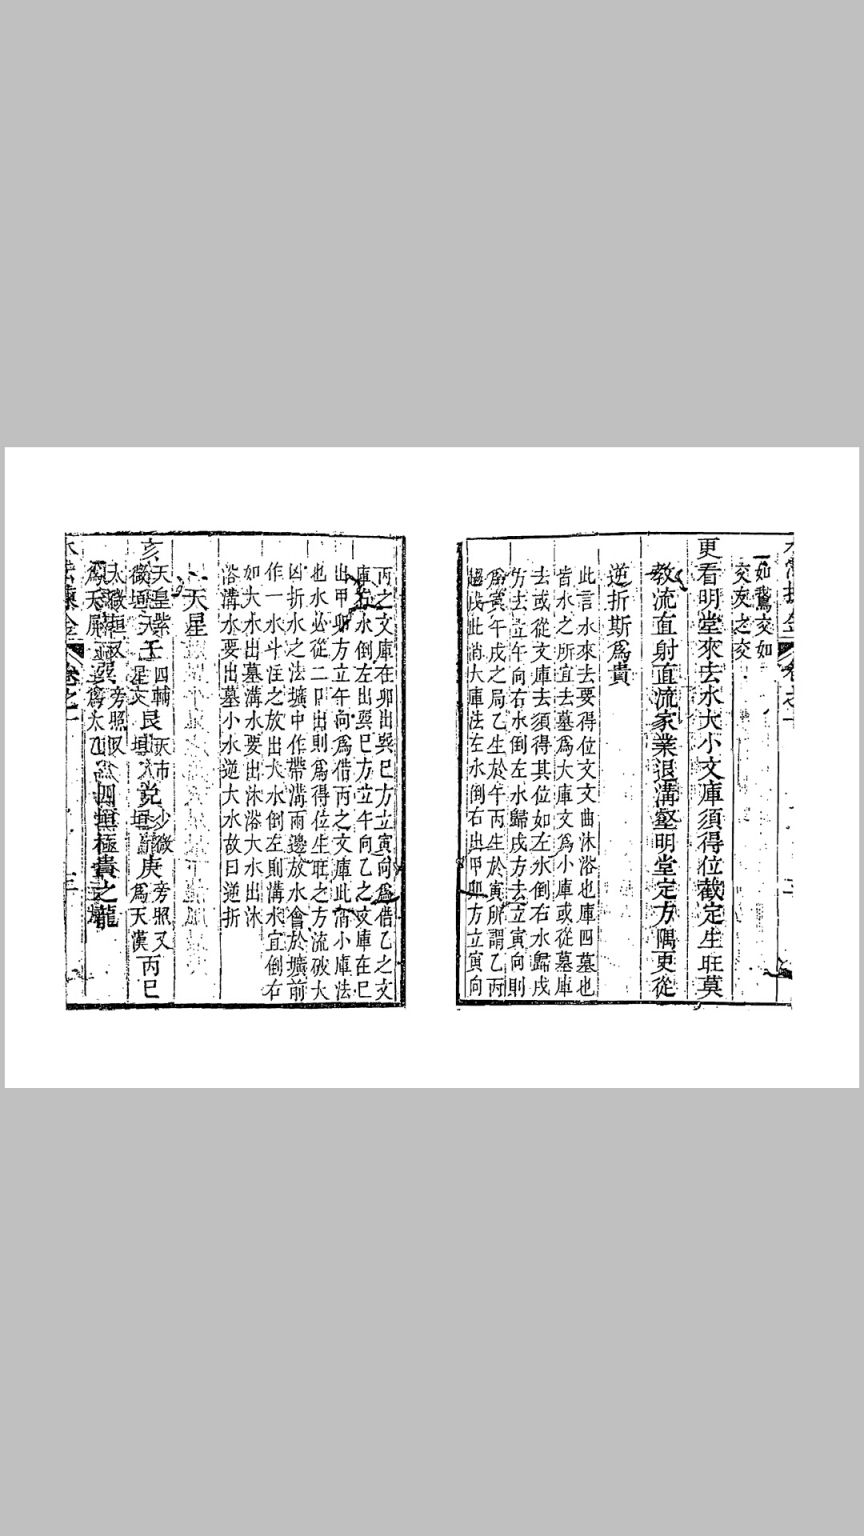 如鵞交如
交友之交
更看明堂來去水大小文庫須得位截定生旺莫
教流直射直流家業退溝壑明堂定方隅更從
逆折斯爲貴
此言水來去要得位文文曲沐浴也庫四墓也
皆水之所宜去墓爲大庫文爲小庫或從墓庫
去或從文庫去須得其位如左水倒右水歸戌
方去立午向右水倒左水歸戌方去立寅向則
爲寅午戌之局乙生於午丙生於寅所謂乙丙
趨戌此消大庫法左水倒右出甲卯方立寅向
丙之文庫在卯出巽巳方立寅向爲借乙之文
庫右水倒左出巽巳方立午向乙之文庫在巳
出甲卯方立午向爲借丙之文庫此消小庫法
也水必從二口出則爲得位生旺之方流破大
凶折水之法壙中作帶溝兩邊放水會於壙前
作一水斗注之放出大水倒左則溝水宜倒右
如大水出墓溝水要出沐浴大水出沐
浴溝水要出墓小水逆大水故曰逆折
天星
亥 天皇紫 微垣 天壬 四輔 星 艮 天市 垣 兌 少微 垣 庚 旁照又 爲天漢 丙巳
太微垣又 爲天屏 巽 旁照又 四垣極貴之龍
水法 金 卷之一